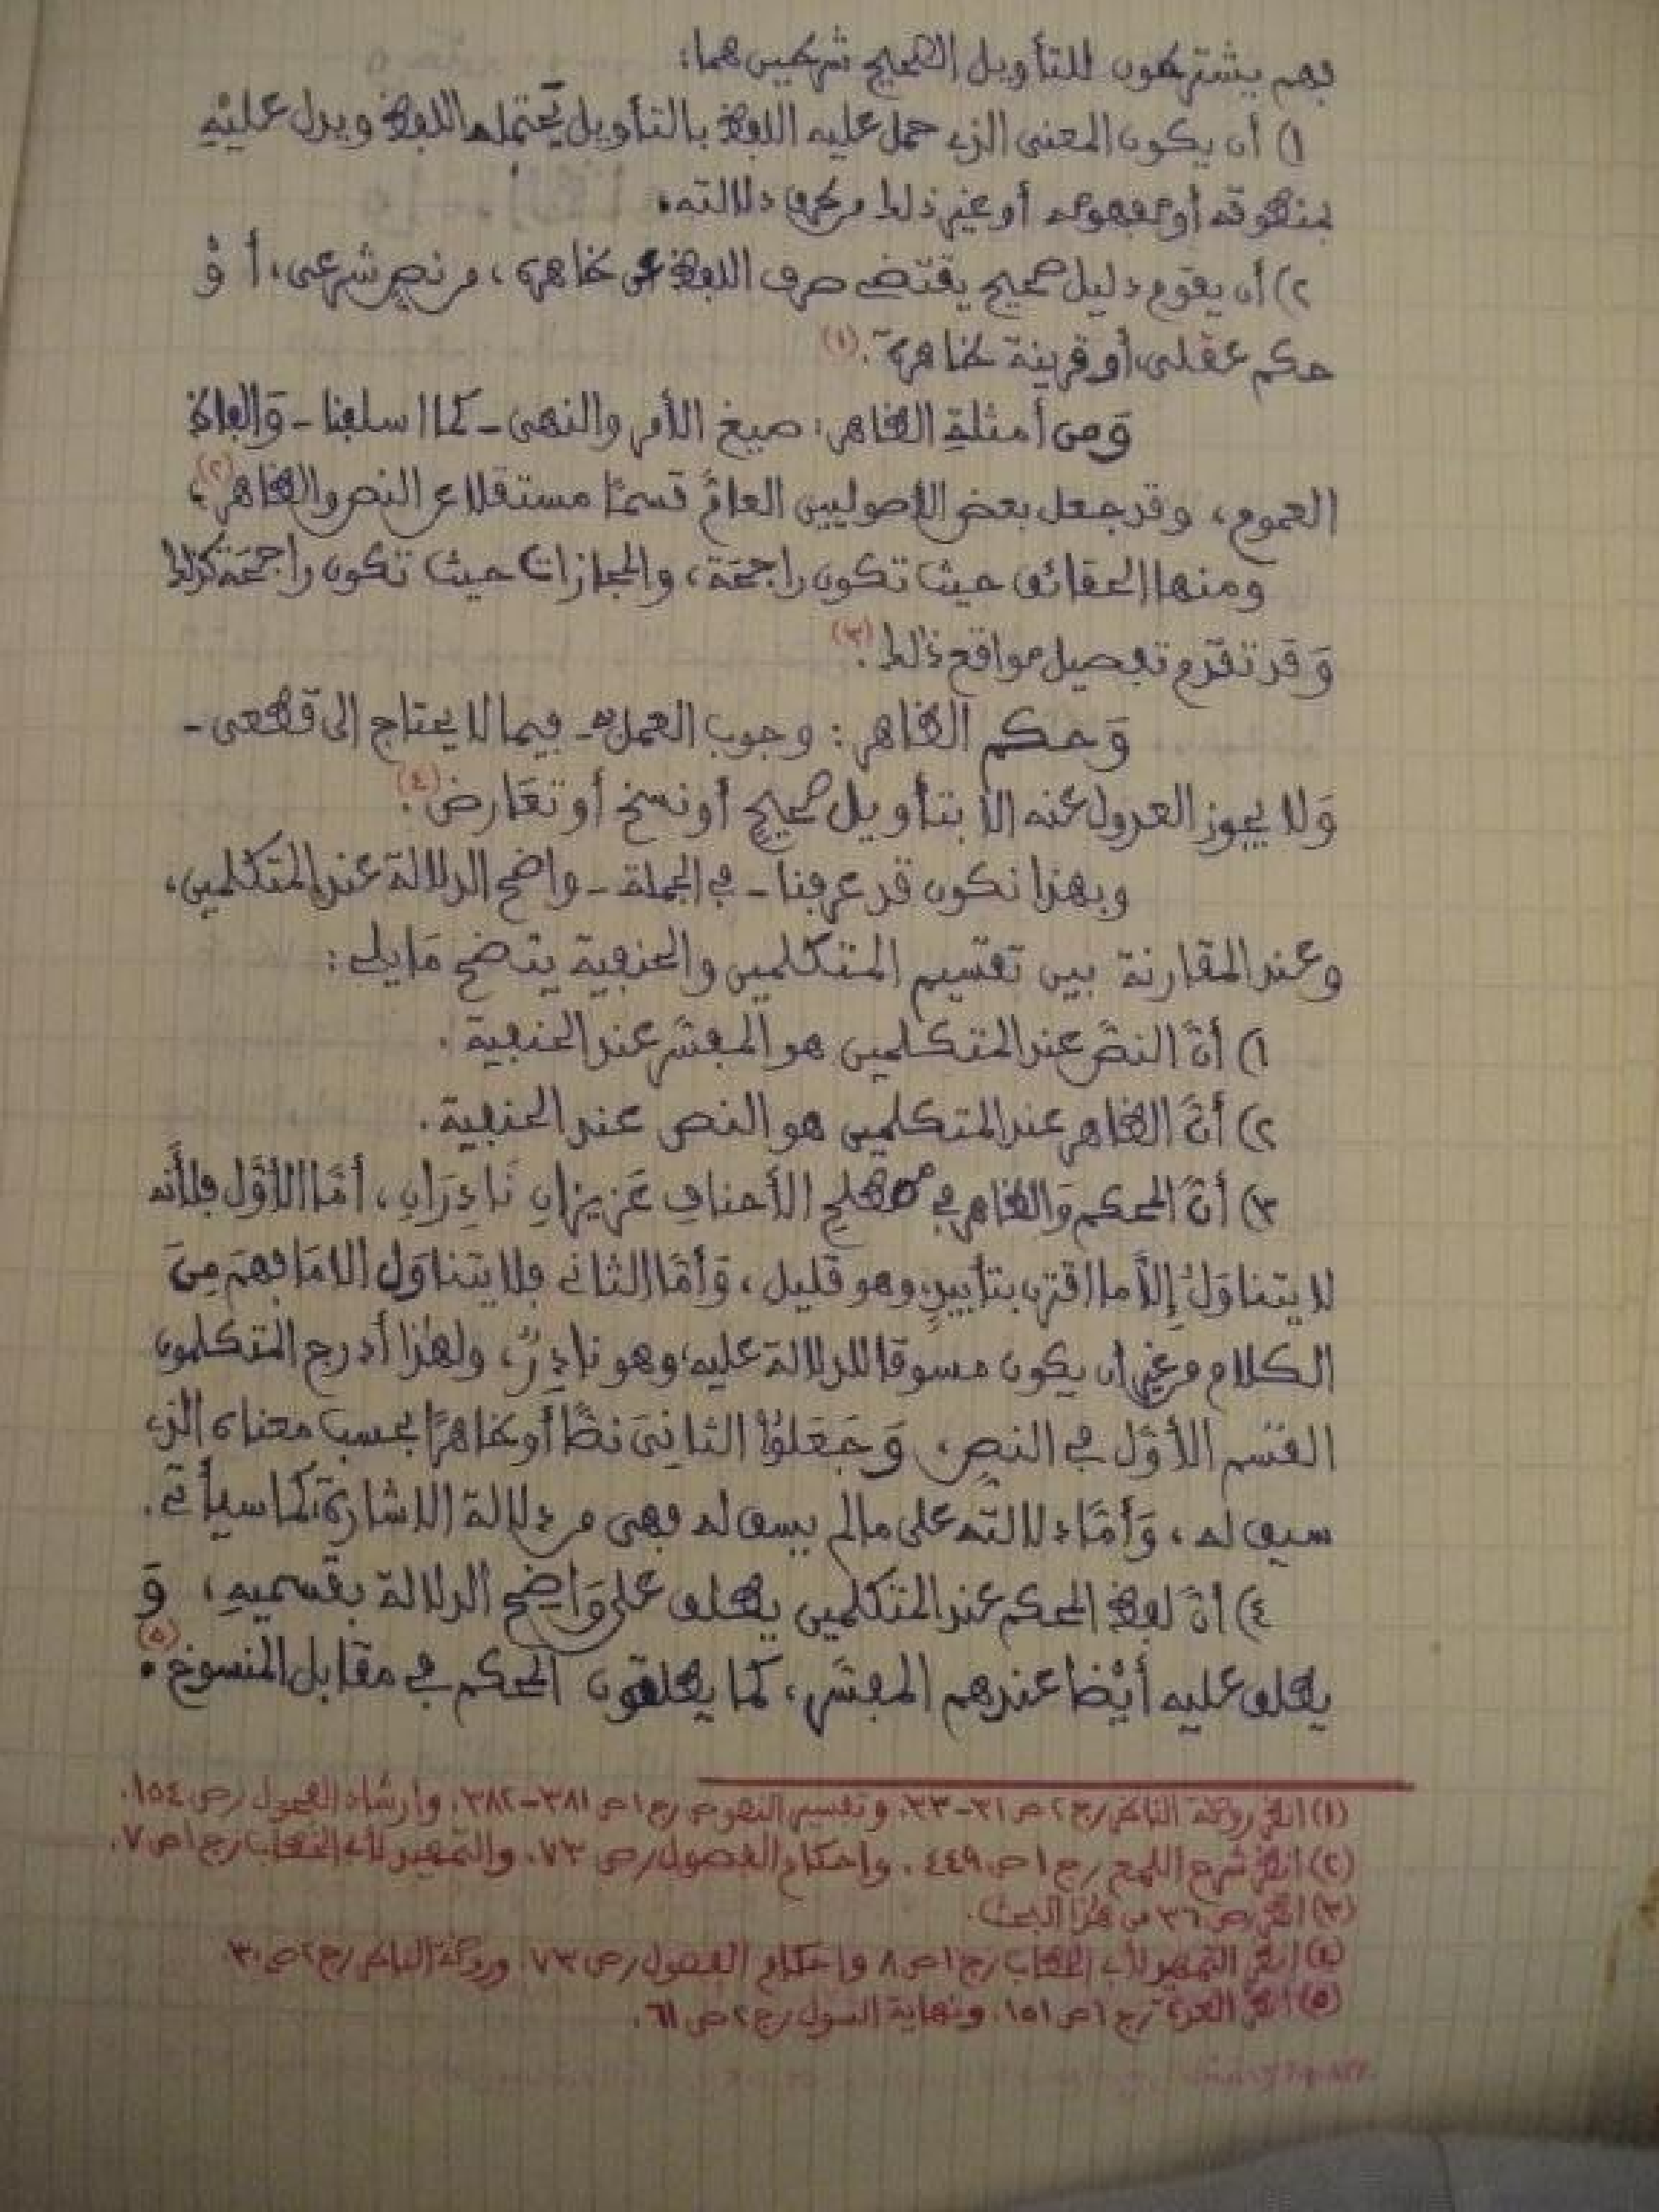 فهم يشترطون للتأويل الصحيح شرطين هما:
١) أن يكون المعنى الذي حمل عليه اللفظ بالتأويل يحتمله اللفظ ويدل عليه
بمنطوقه أو بمفهومه أو غير ذلك من طرق دلالته.
٢) أن يقوم دليل صحيح يقتضي صرف اللفظ عن ظاهره، من نص شرعي، أوْ
حكم عقلي أو قرينة ظاهرة.(١)
وَمن أمثلةِ الظاهر: صيغ الأمر والنهي - كما اسلفنا - وَالفاظ
العموم، وقد جعل بعض الأصوليين العامَّ قسمًا مستقلا عن النص والظاهر(٢)،
ومنها الحقائق حيث تكون راجحَة، والمجازات حيث تكون راجحَة كذلك
وَقد تقدّم تفصيل مواقع ذلك.(٣)
وَحكم الظاهر: وجوب العمل به - فيما لا يحتاج الى قطعي -
وَلا يجوز العدول عنه الا بتأويل صحيحٍ أو نسخ أو تعَارض(٤).
وبهذا نكون قد عرفنا - في الجملة - واضح الدلالة عند المتكلمين،
وعند المقارنة بين تقسيم المتكلمين والحنفية يتضح مَا يلي:
١) أنَّ النصَّ عند المتكلمين هو المفسَّر عند الحنفية.
٢) أنَّ الظاهر عند المتكلمين هو النص عند الحنفية.
٣) أنَّ المحكم وَالظاهر في مصطلح الأحنافِ عَزيزانِ نَادِرَانِ، أمَّا الأوَّل فلأنه
لا يتناوَلُ إلاَّ ما اقترن بتأبيدٍ، وهو قليل، وَأمَّا الثاني فلا يتناوَل الا مَا فهمَ مِنَ
الكلام من غير أن يكون مسوقا للدلالة عليه، وهو نادِرٌ، ولهٰذا أدرج المتكلمون
القسم الأوَّل في النصِ، وَجَعَلوْا الثانيَ نصًّا أو ظاهرًا بحسب معناه الذي
سيق له، وَأمَّا دلالته على مالم يسق له فهي من دلالة الاشارة، كما سيأتي.
٤) أنَّ لفظ المحكم عند المتكلمين يطلق على وَاضح الدلالة بقسميهِ، وَ
يطلق عليه أيْضا عندهم المفسَّر، كما يطلقون المحكم في مقابل المنسوخ(٥).
(١) انظر روضة الناظر/ج٢ص٣١-٣٣، وتفسير النصوص/ج١ص٣٨١-٣٨٢، وارشاد الفحول/ص١٥٤.
(٢) انظر شرح اللمع/ج١ص٤٤٩، واحكام الفصول/ص٧٣، والتمهيد لأبي الخطاب/ج١ص٧.
(٣) انظر/ص٣٦ من هذا البحث.
(٤) انظر التمهيد لأبي الخطاب/ج١ص٨ واحكام الفصول/ص٧٣، وروضة الناظر/ج٢ص٣٠.
(٥) انظر العدة/ج١ص١٥١، ونهاية السول/ج٢ص٦١.